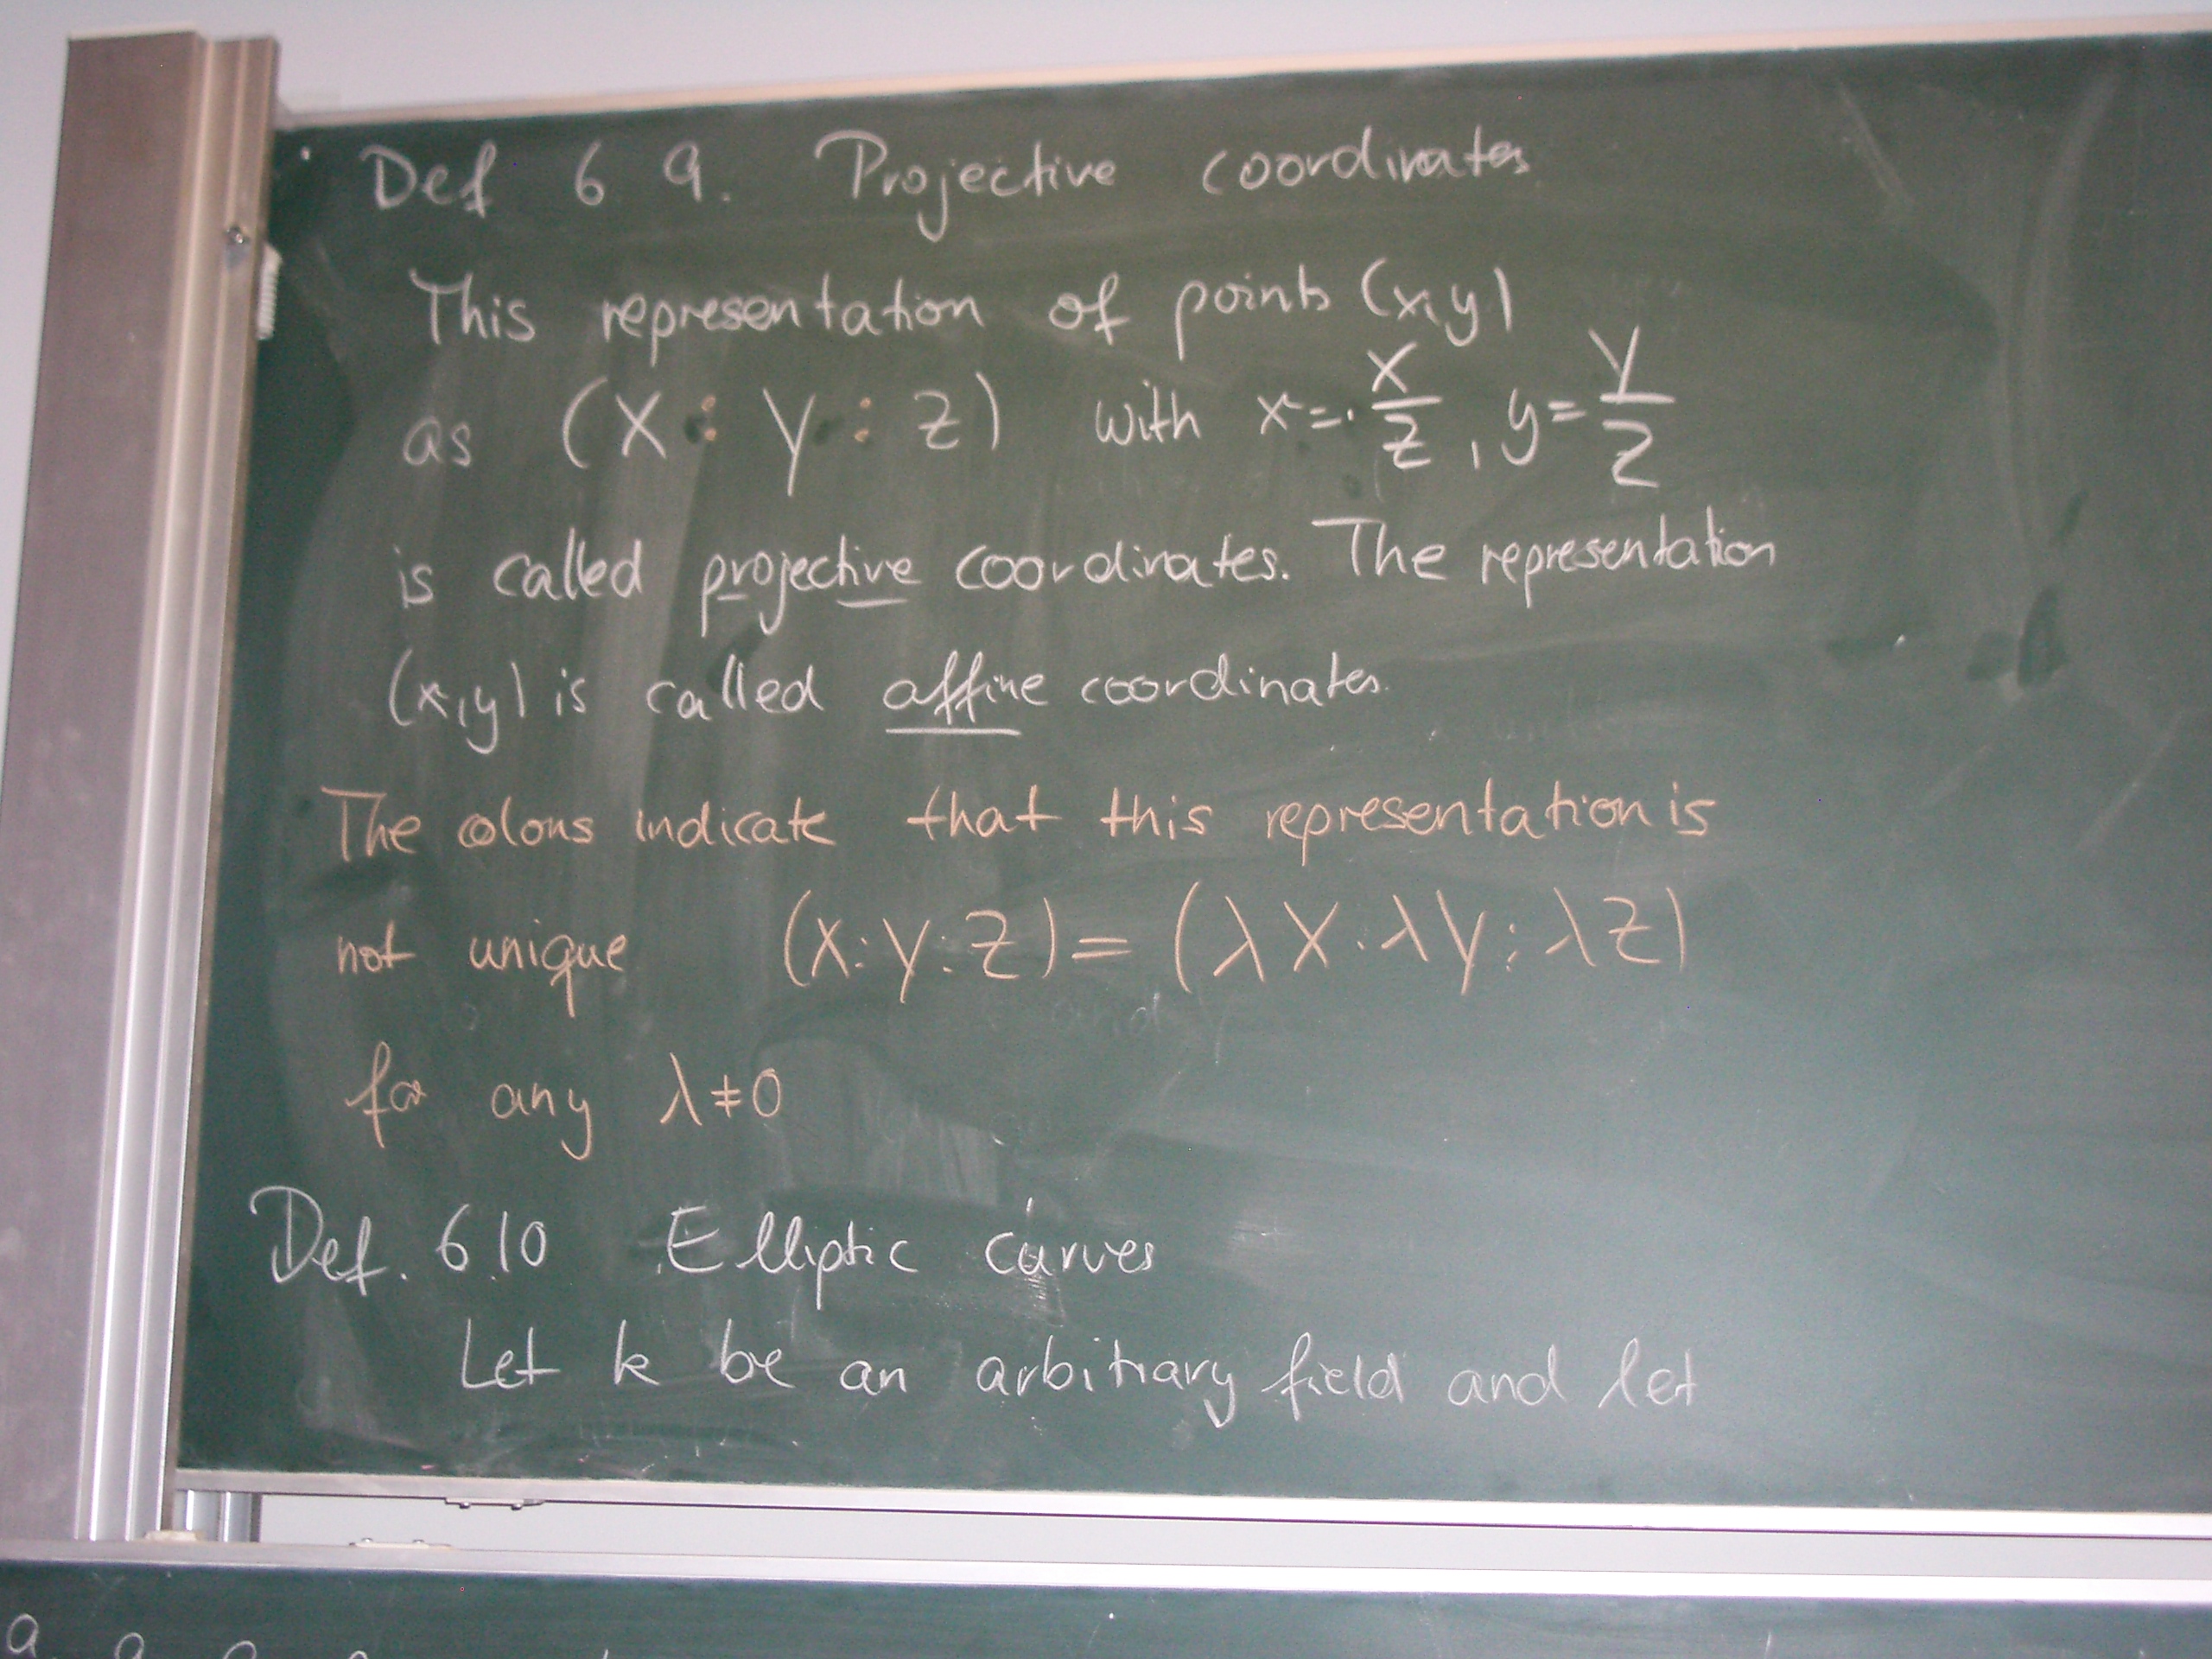 Def 6.9. Projective coordinates
This representation of points (x,y)
as (X : Y : Z) with x = X/Z, y = Y/Z
is called projective coordinates. The representation
(x,y) is called affine coordinates.
The colons indicate that this representation is
not unique (X:Y:Z) = (λX:λY:λZ)
for any λ≠0
Def. 6.10 Elliptic curves
Let k be an arbitrary field and let